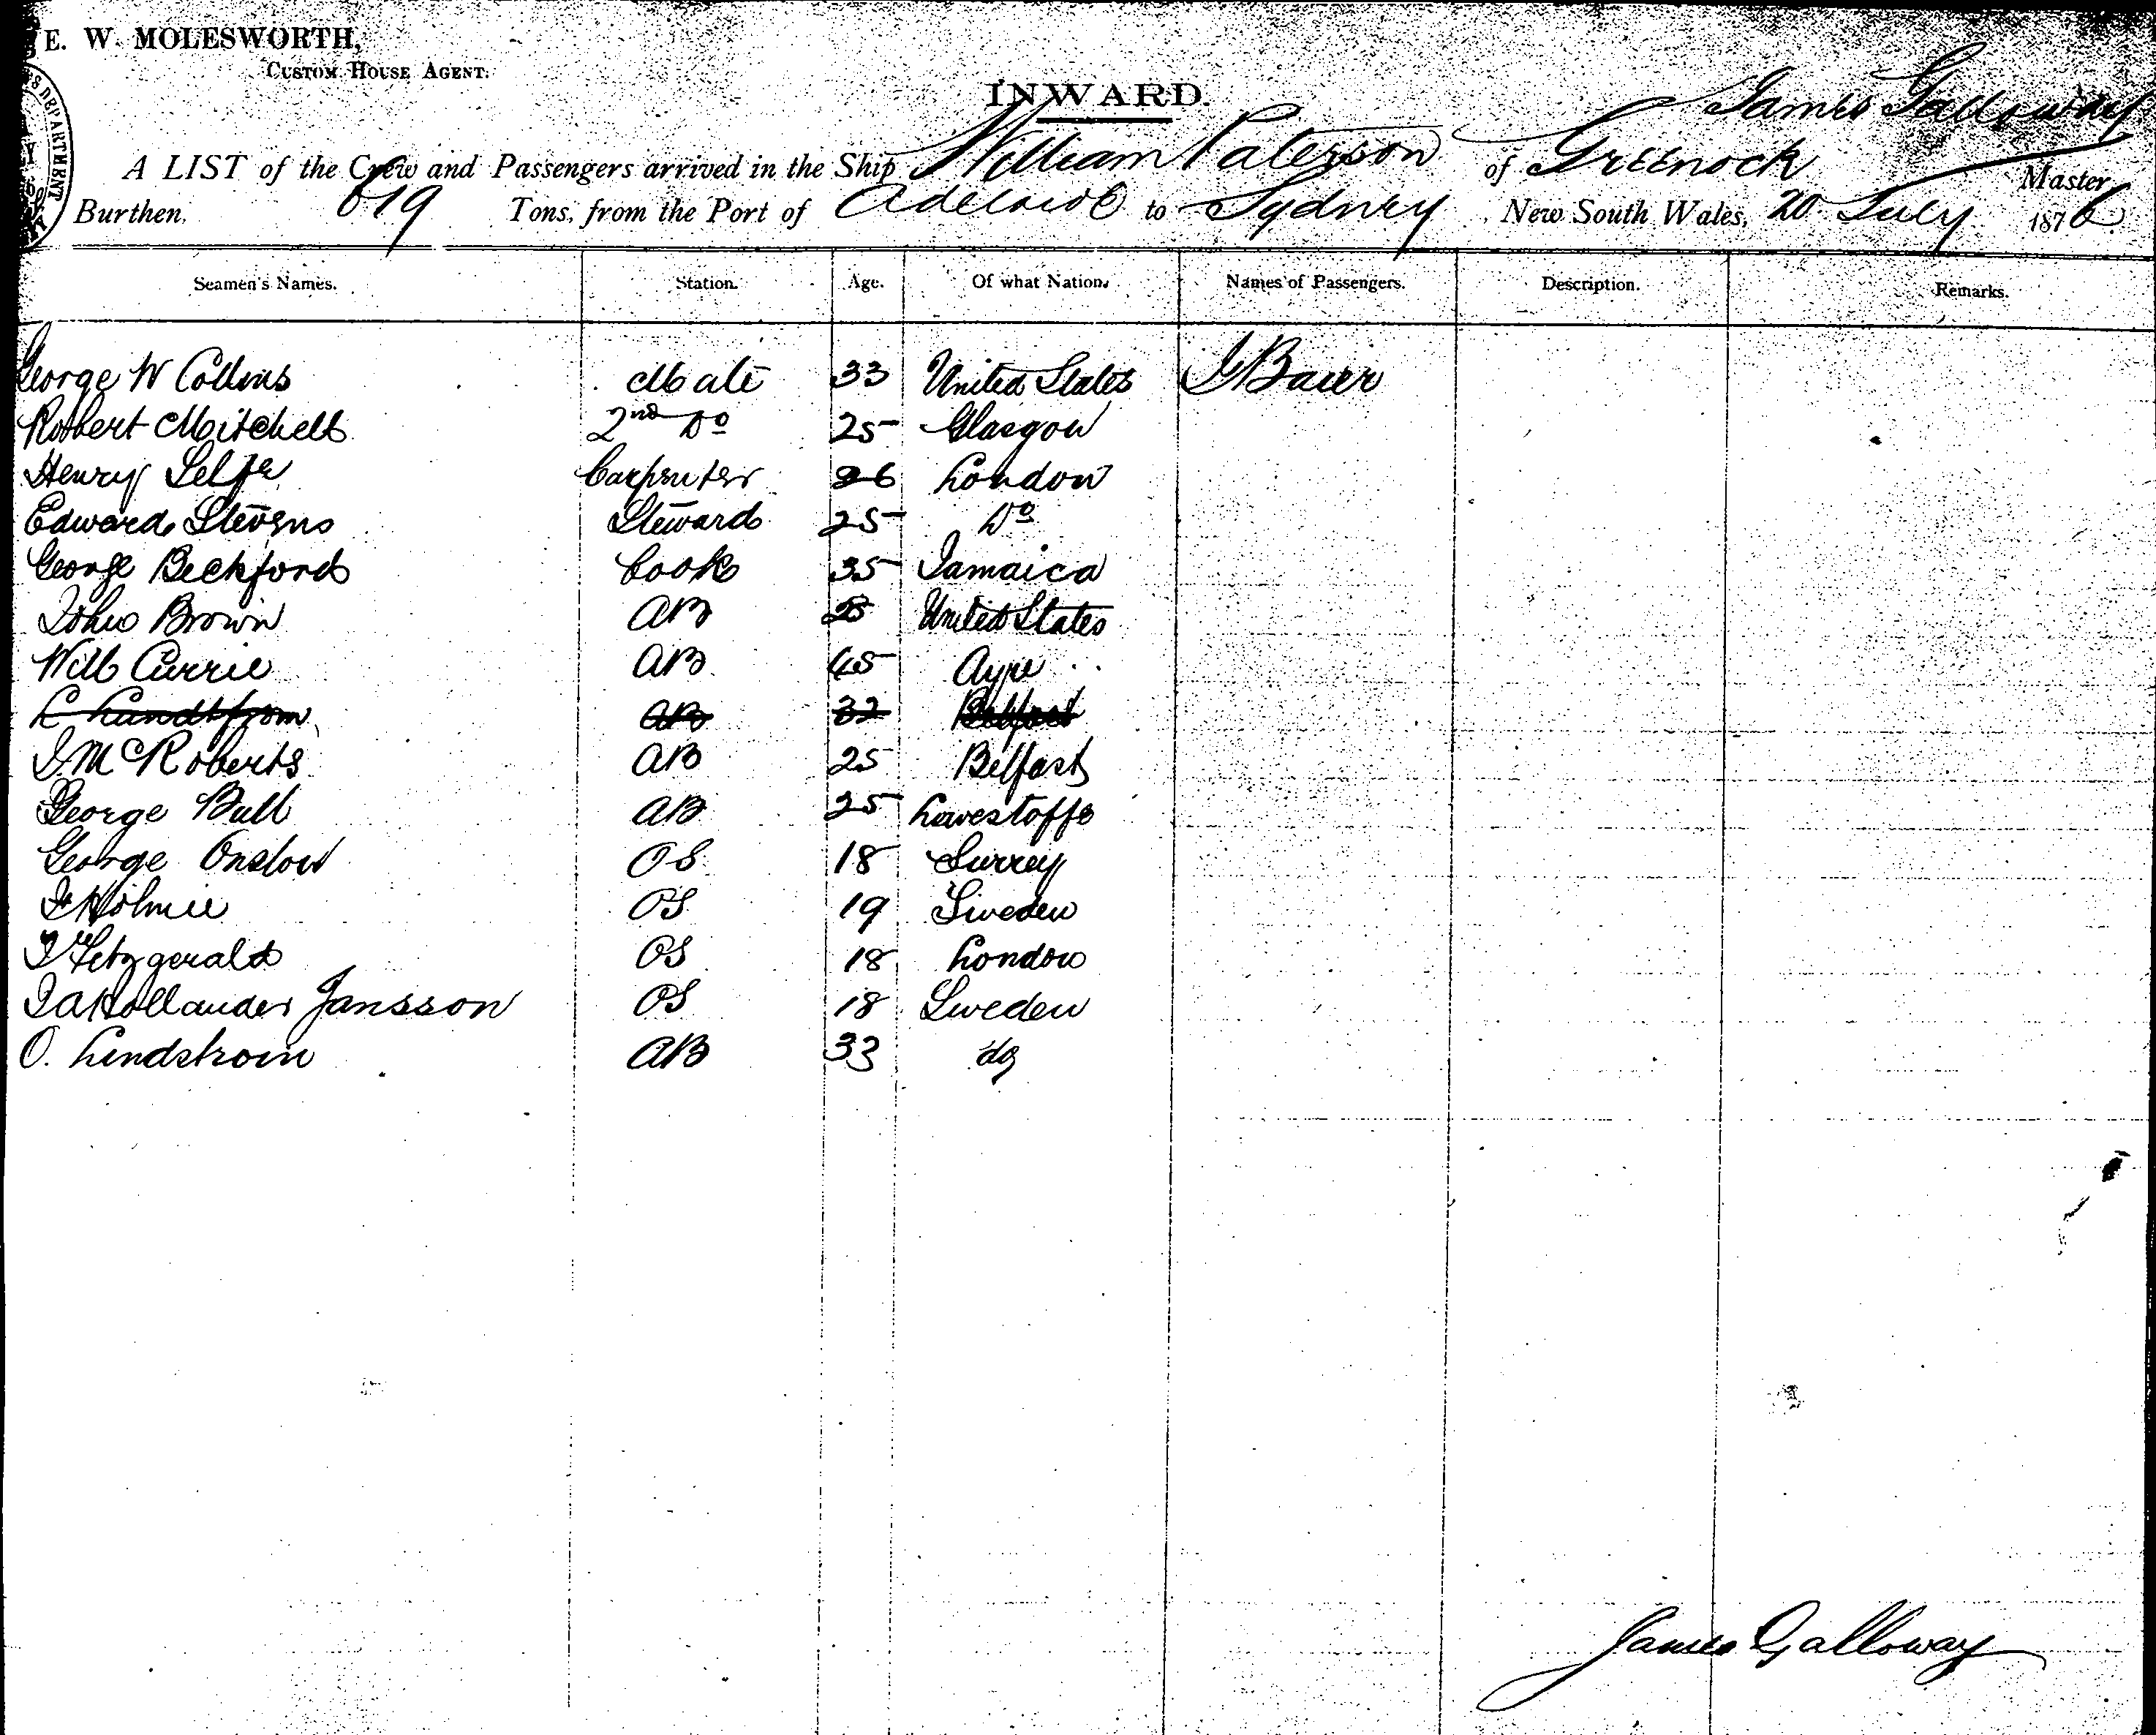 E. W. MOLESWORTH,
CUSTOM HOUSE AGENT.
DEPARTMENT
INWARD.
James Galloway
A LIST of the Crew and Passengers arrived in the Ship William Paterson of Greenock Master,
Burthen, 619 Tons, from the Port of Adelaide to Sydney, New South Wales, 20 July 1876
Seamen's Names. Station. Age. Of what Nation. Names of Passengers. Description. Remarks.
George W Collins Mate 33 United States Baier
Robert Mitchell 2nd Do 25 Glasgow
Henry Selfe Carpenter 26 London
Edward Stevens Steward 25 Do
George Beckford Cook 35 Jamaica
John Brown AB United States
Will Currie AB 45 Ayre
AB 32 Belfast
McRoberts AB 25 Belfast
George Bull AB 25 Lowestoffe
George Onslow OS 18 Surrey
Holmie OS 19 Sweden
Fitzgerald OS 18 London
Hollander Jansson OS 18 Sweden
O. Lindstrom AB 33 do
James Galloway